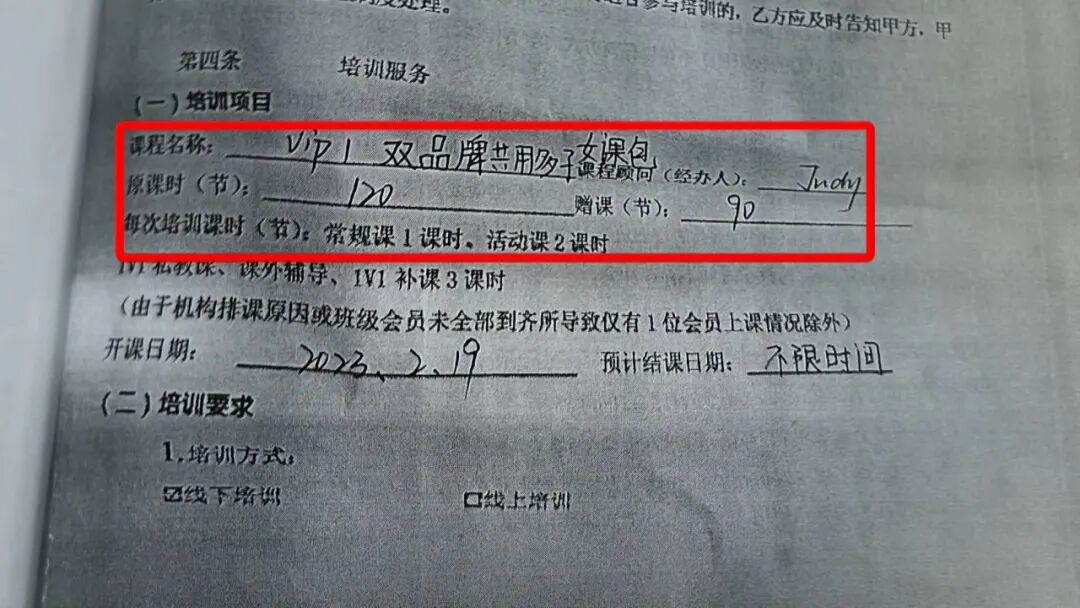 处理。
参与培训的，乙方应及时告知甲方，甲
第四条 培训服务
（一）培训项目
课程名称： Vip1 双品牌共用多子女课包 课程顾问（经办人）： Judy
原课时（节）： 120 赠课（节）： 90
每次培训课时（节）：常规课1课时。活动课2课时
1V1私教课、课外辅导、1V1补课3课时
（由于机构排课原因或班级会员未全部到齐所导致仅有1位会员上课情况除外）
开课日期： 2023、2、19 预计结课日期： 不限时间
（二）培训要求
1.培训方式：
☑线下培训 □线上培训